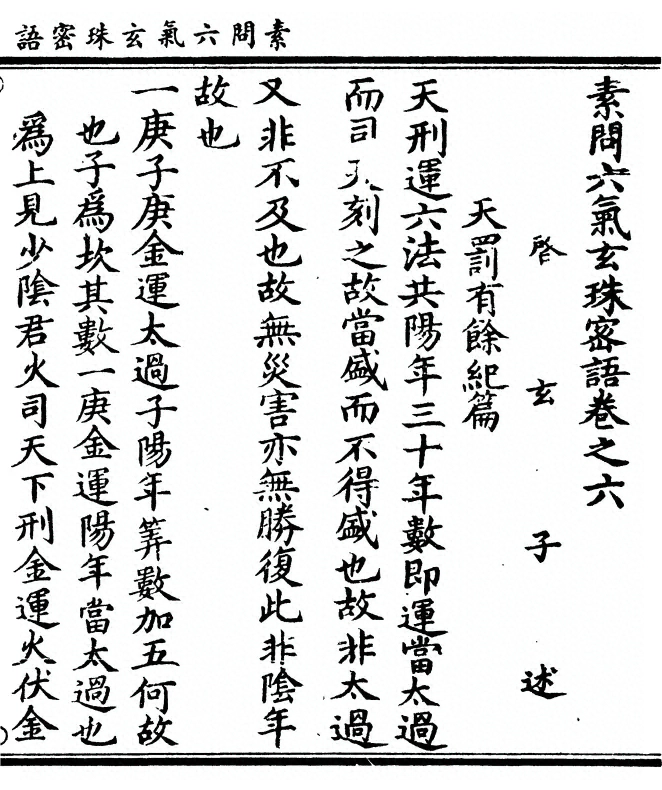 素問六氣玄珠密語
素問六氣玄珠密語卷之六
啓玄子述
天罰有餘紀篇
天刑運六法共陽年三十年數即運當太過
而司刻之故當盛而不得盛也故非太過
又非不及也故無災害亦無勝復此非陰年
故也
一庚子庚金運太過子陽年筭數加五何故
也子爲坎其數一庚金運陽年當太過也
爲上見少陰君火司天下刑金運火伏金